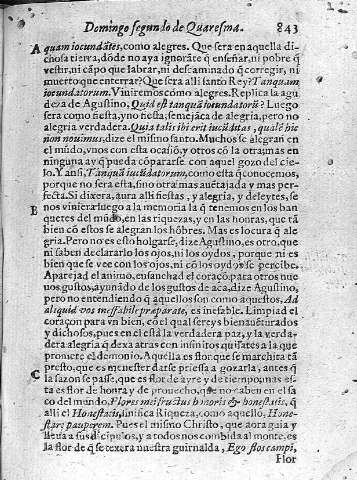 Domingo segundo de Quaresma. 843
A quam iocundãtes, como alegres. Que sera en aquella di-
chosa tierra, dõde no aya ignorãte q̃ enseñar, ni pobre q̃
vestir, ni cãpo que labrar, ni descaminado q̃ corregir, ni
muerto que enterrar? Que sera alli santo Rey? Tanquam
iocundatorum. Viviremos cómo alegres. Replica la agu
deza de Agustino, Quid est tanquã iocundatorũ? Luego
sera como fiesta, y no fiesta, semejãça de alegria, pero no
alegria verdadera. Quia talis ibi erit iucũditas, qualẽ hic
non nouimus, dize el mismo santo. Muchos se alegran en
el mũdo, vnos con esta ocasiõ, y otros cõ la otra, mas en
ninguna ay q̃ pueda cõpararse con aquel gozo del cie-
lo. Y ansi, Tanquã iucũdatorum, como esta q̃ conocemos,
porque no sera esta, sino otra mas auẽtajada y mas per-
fecta. Si dixera, aura alli fiestas, y alegria, y deleytes, se
B nos viniera luego a la memoria la q̃ tenemos en los ban
quetes del mũdo, en las riquezas, y en las honras, que tã
bien cõ estos se alegran los hõbres. Mas es locura q̃ ale
gria. Pero no es esto holgarse, dize Agustino, es otro, que
ni saben declararlo los ojos, ni los oydos, porque ni es
bien que se vee con los ojos, ni cõ los oydos se percibe.
Aparejad el animo, ensanchad el coraçõ para otros nue
uos gustos, ayunãdo de los gustos de aca, dize Agustino,
pero no entendiendo q̃ aquellos son como aquestos, Ad
aliquid vos ineffabile præparate, es inefable. Limpiad el
coraçon para vn bien, cõ el qual sereys bienauẽturados
y dichosos, pues en el està la verdadera paz, y la verda-
dera alegria q̃ dexa atras con infinitos quilates a la que
promete el demonio. Aquella es flor que se marchita tã
presto, que es menester darse priessa a gozarla, antes q̃
C la sazon se passe, que es flor de ayre y de tiempo, mas es-
ta es flor de honra y de prouecho, que no caben en el sa
co del mundo. Flores mei fructus honoris & honestatis. q̃
alli el Honestatis, sinifica Riqueza, como aquello, Hone-
stare pauperem. Pues el mismo Christo, que aora guia y
lleua a sus dicipulos, y a todos nos combida al monte, es
la flor de q̃ se texera nuestra guirnalda, Ego flos campi,
Flor